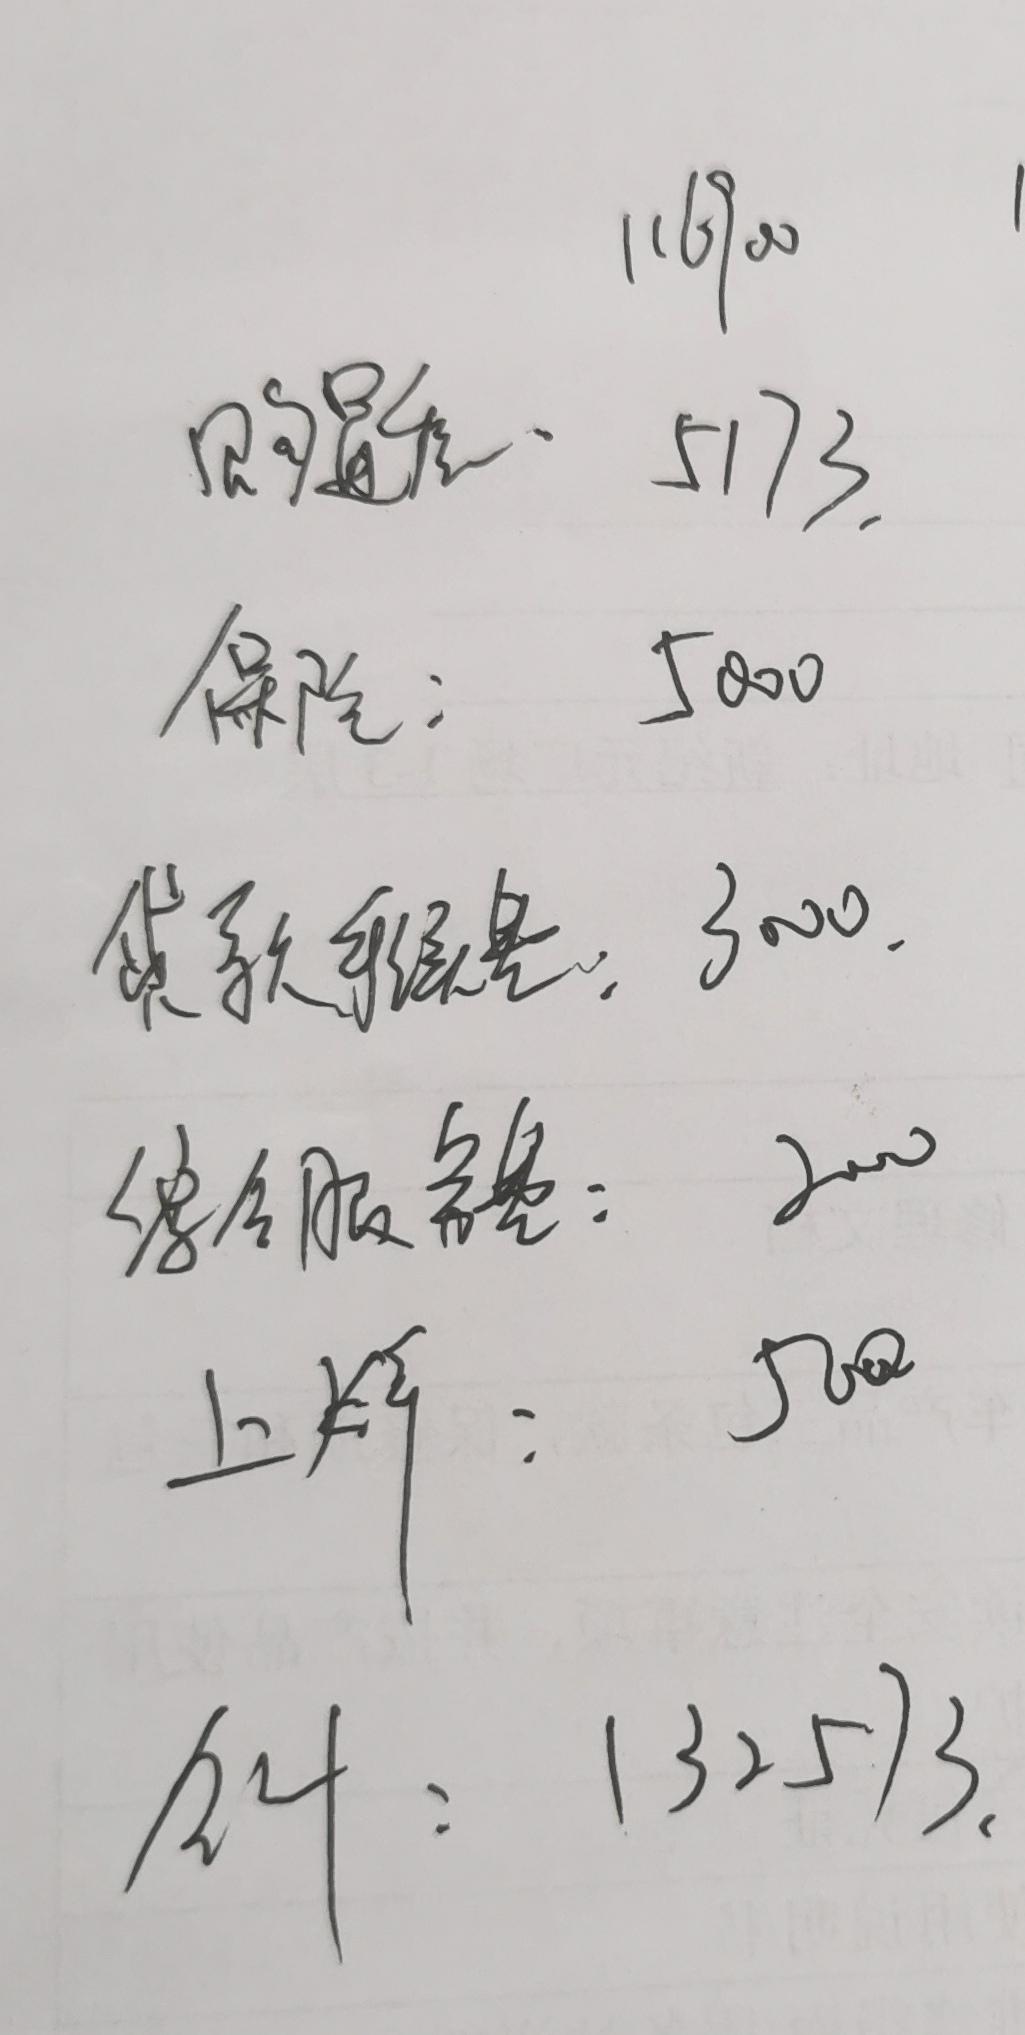 116900
购置税: 5173.
保险: 5000
贷款手续费: 3000.
综合服务费: 2000
上牌: 500
合计: 132573.